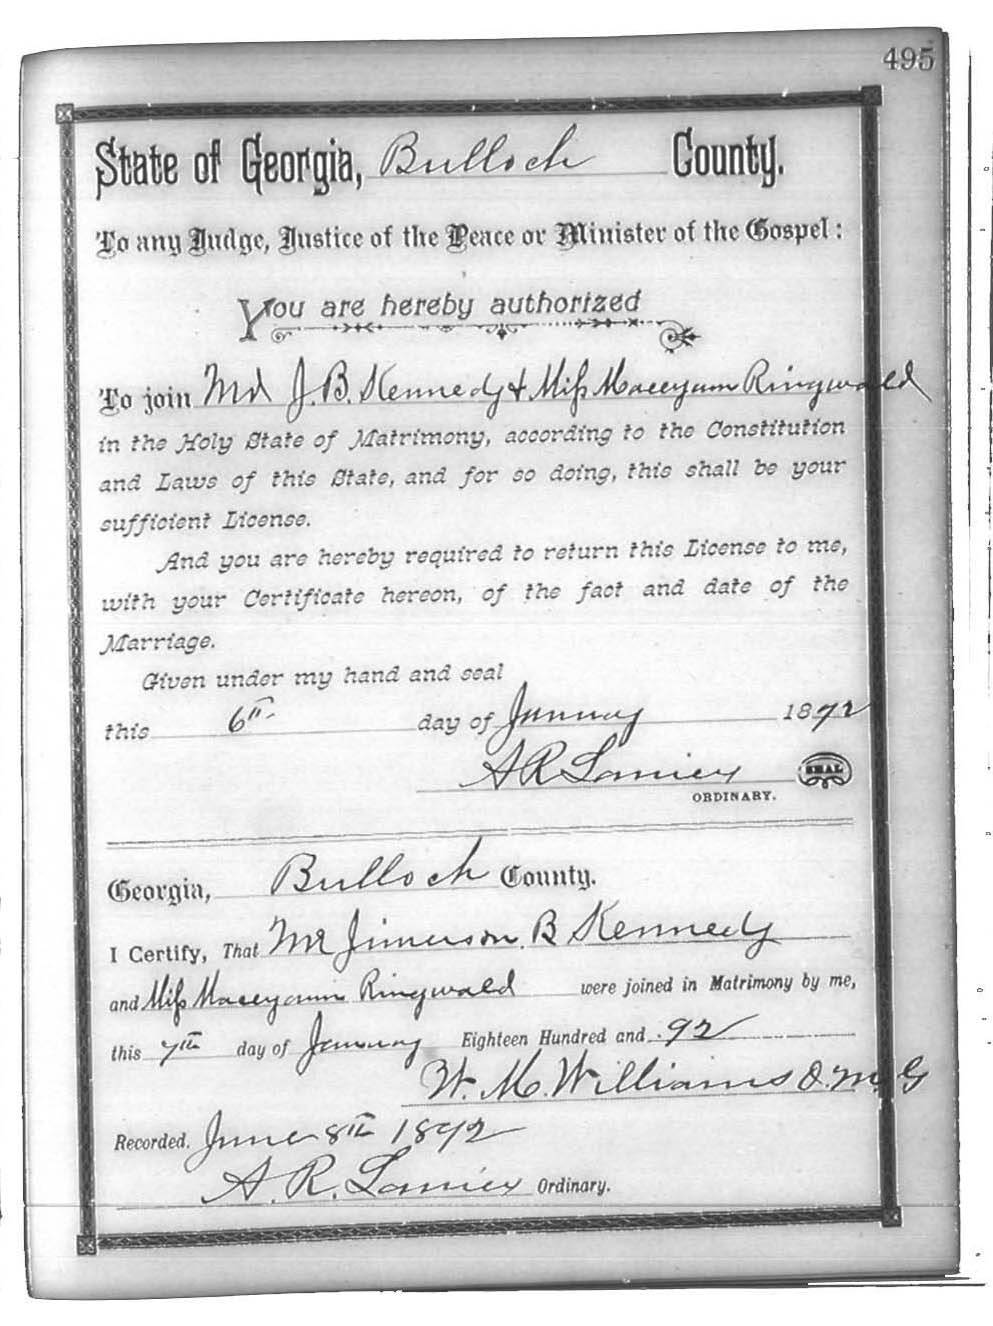 495
State of Georgia, Bulloch County.
To any Judge, Justice of the Peace or Minister of the Gospel:
You are hereby authorized
To join Mr J. B. Kennedy & Miss Maceyann Ringwald
in the Holy State of Matrimony, according to the Constitution
and Laws of this State, and for so doing, this shall be your
sufficient License.
And you are hereby required to return this License to me,
with your Certificate hereon, of the fact and date of the
Marriage.
Given under my hand and seal
this 6th day of January 1892
A R Lanier SEAL
ORDINARY.
Georgia, Bulloch County.
I Certify, That Mr Jimerson. B Kennedy
and Miss Maceyann Ringwald were joined in Matrimony by me,
this 7th day of January Eighteen Hundred and 92
W. M. Williams O. M. G
Recorded. June 8th 1892
A. R. Lanier Ordinary.